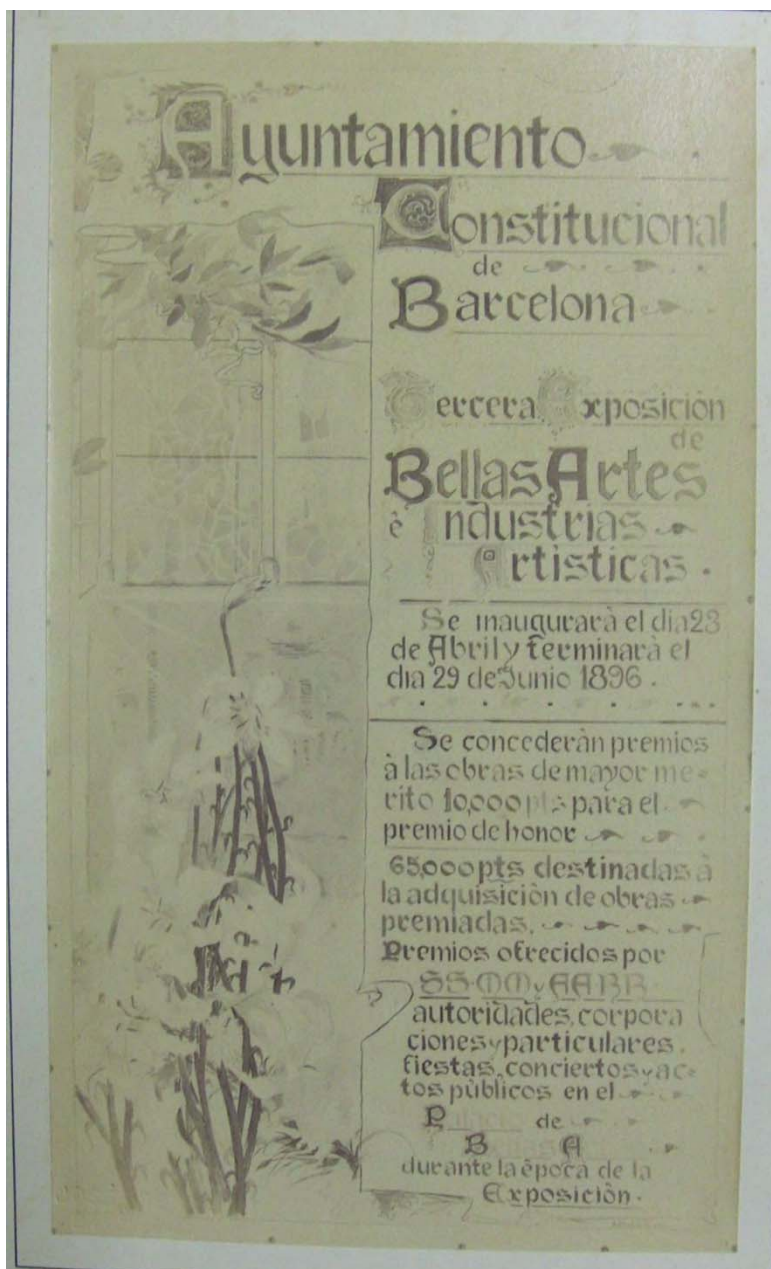 Ayuntamiento
Constitucional
de
Barcelona
Tercera Exposición
de
Bellas Artes
è Industrias
Artisticas.
Se inaugurarà el dia 23
de Abril y terminarà el
dia 29 de Junio 1896.
Se concederàn premios
à las obras de mayor me-
rito 10,000 pts para el
premio de honor
65,000 pts destinadas à
la adquisiciòn de obras
premiadas.
Premios ofrecidos por
SS·MM y AARR
autoridades, corpora
ciones y particulares.
fiestas, conciertos y ac-
tos pùblicos en el
P de
B A
durante la època de la
Exposiciòn.